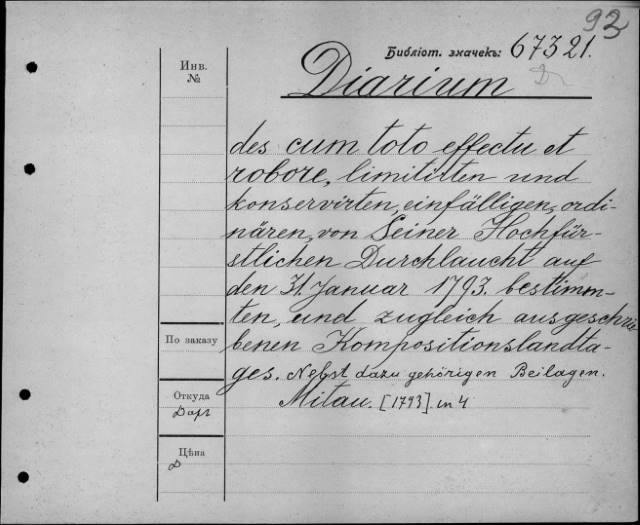 92
Библіот. значекъ: 67321.
Инв.
№
Diarium
des cum toto effectu et
robore, limitirten und
konservirten, einfälligen, ordi-
nären, von Seiner Hochfür-
stlichen Durchlaucht auf
den 31. Januar 1793. bestimm-
ten, und zugleich ausgeschrie
benen Kompositionslandta-
ges. Nebst dazu gehörigen Beilagen.
Mitau. [1793]. in 4
По заказу
Откуда
Даръ
Цѣна